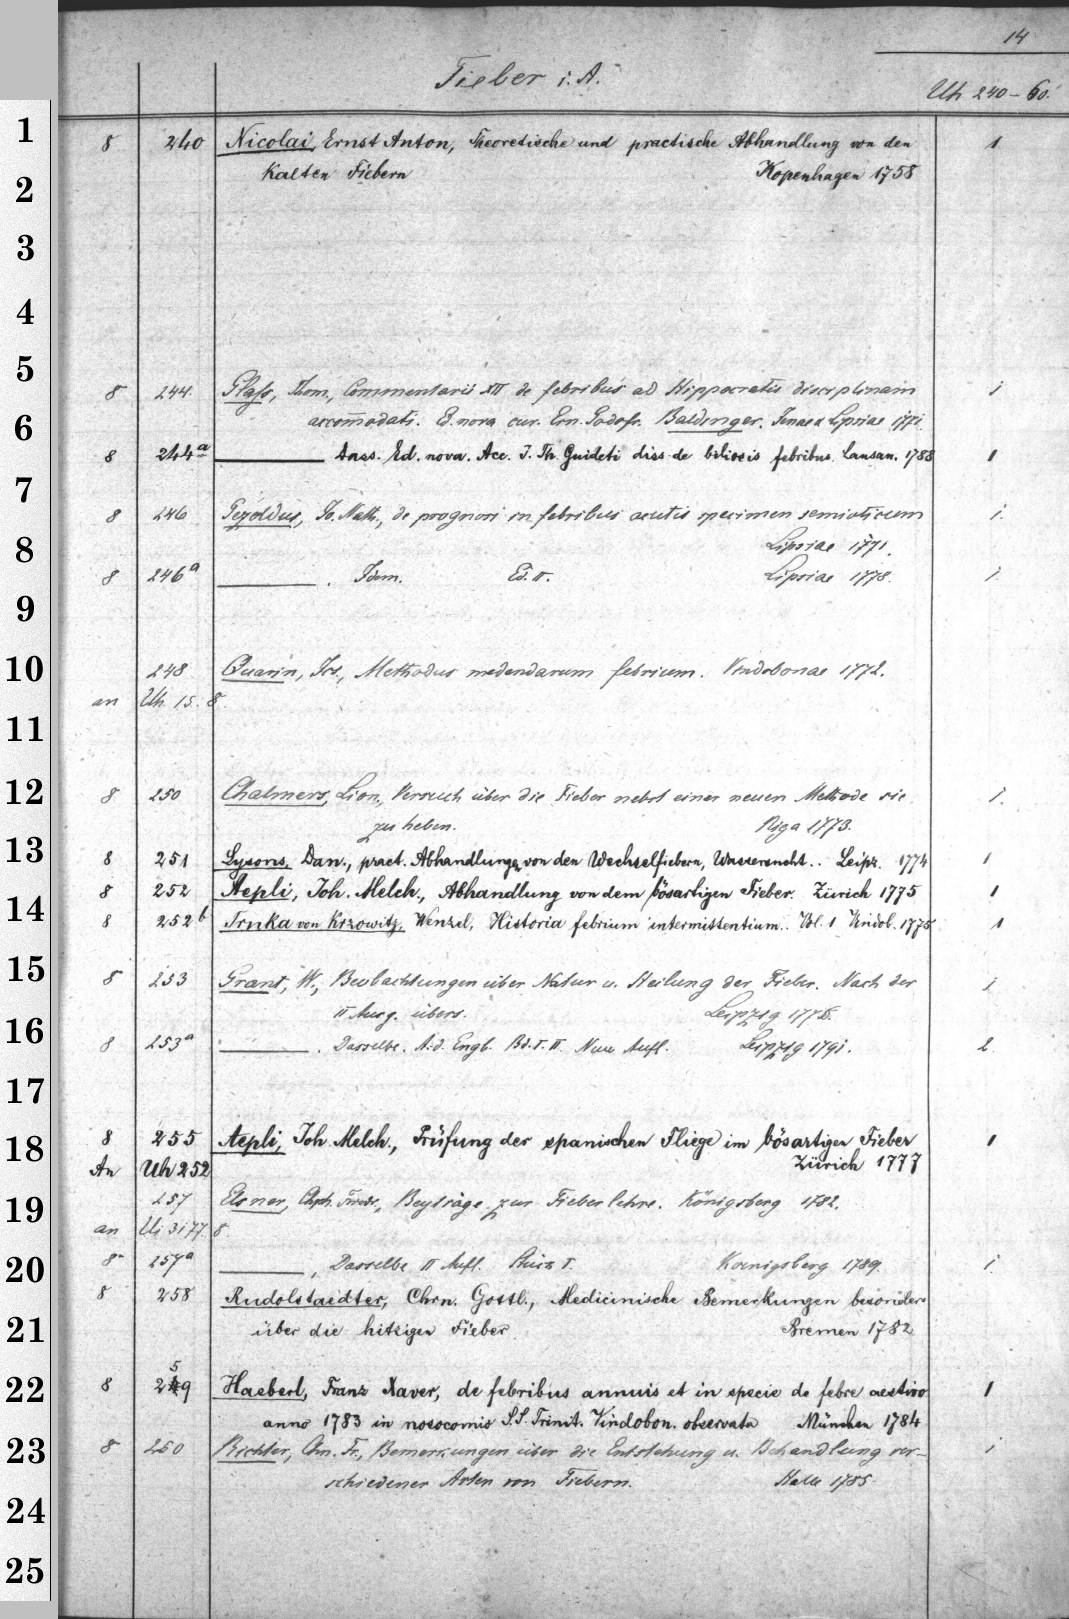 14
Fieber i. A.
Uh 240-60.
1
8 240 Nicolai, Ernst Anton, Theoretische und practische Abhandlung von den 1
2
Kalten Fiebern Kopenhagen 1758
3
4
5
8 244. Glass, Thom., Commentarii XII de febribus ad Hippocratis disciplinam 1
6
accom̄odati. Ed. nova cur. Ern. Godofr. Baldinger. Jenae et Lipsiae 1771.
8 244a ——— Dass. Ed. nova. Acc. J. Th. Guideti diss. de biliosis febribus. Lausan. 1788 1
7
8 246 Pezoldus, Jo. Nath., de prognosi in febribus acutis specimen semioticum 1.
8
Lipsiae 1771.
8 246a ———. Idem. Ed. II. Lipsiae 1778. 1.
9
10
248 Quarin, Jos., Methodus medendarum febrium. Vindobonae 1772.
an Uh. 15. 8.
11
12
8 250 Chalmers, Lion., Versuch über die Fieber nebst einer neuen Methode sie 1.
zu heben. Riga 1773.
13
8 251 Lysons, Dan., pract. Abhandlungen von den Wechselfiebern, Wassersucht.. Leipz. 1774 1
8 252 Aepli, Joh. Melch., Abhandlung von dem bösartigen Fieber. Zürich 1775 1
14
8 252b Trnka von Krzowitz, Wenzel, Historia febrium intermittentium.. Vol. 1 Vindob. 1775 1
15
8 253 Grant, W., Beobachtungen über Natur u. Heilung der Fieber. Nach der 1
II Ausg. übers. Leipzig 1775.
16
8 253a ———. Dasselbe. A. d. Engl. Bd. I. II. Neue Aufl. Leipzig 1791. 2.
17
18
8 255 Aepli, Joh. Melch., Prüfung der spanischen Fliege im bösartigen Fieber 1
An Uh 252 Zürich 1777
19
257 Elsner, Chph. Friedr., Beyträge zur Fieberlehre. Königsberg 1782.
an Ui 3177. 8.
20
8 257a ———, Dasselbe II Aufl. Stück I. Koenigsberg 1789. 1.
8 258 Rudolstaedter, Chrn. Gottl., Medicinische Bemerkungen besonders
21
über die hitzigen Fieber Bremen 1782
22
8 259 Haeberl, Franz Xaver, de febribus annuis et in specie de febre aestivo 1
anno 1783 in nosocomio S.S. Trinit. Vindobon. observata München 1784
23
8 260 Richter, Chn. Fr., Bemerkungen über die Entstehung u. Behandlung ver- 1
schiedener Arten von Fiebern. Halle 1785.
24
25